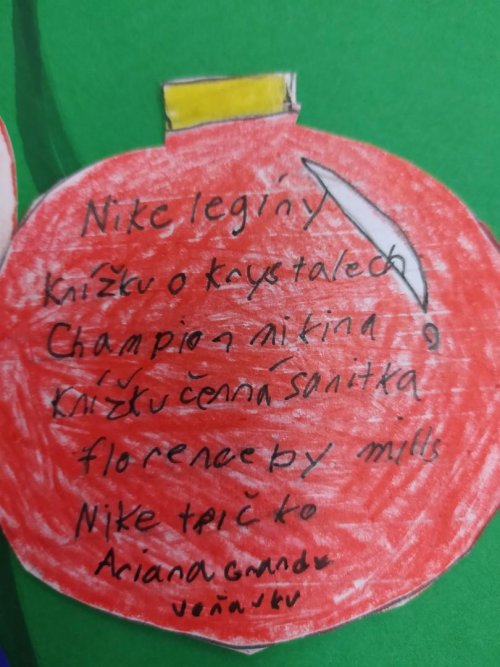 Nike legíny
Knížku o krystalech
Champion mikina
Knížku černá sanitka
florence by mills
Nike tričko
Ariana Grande
voňavku